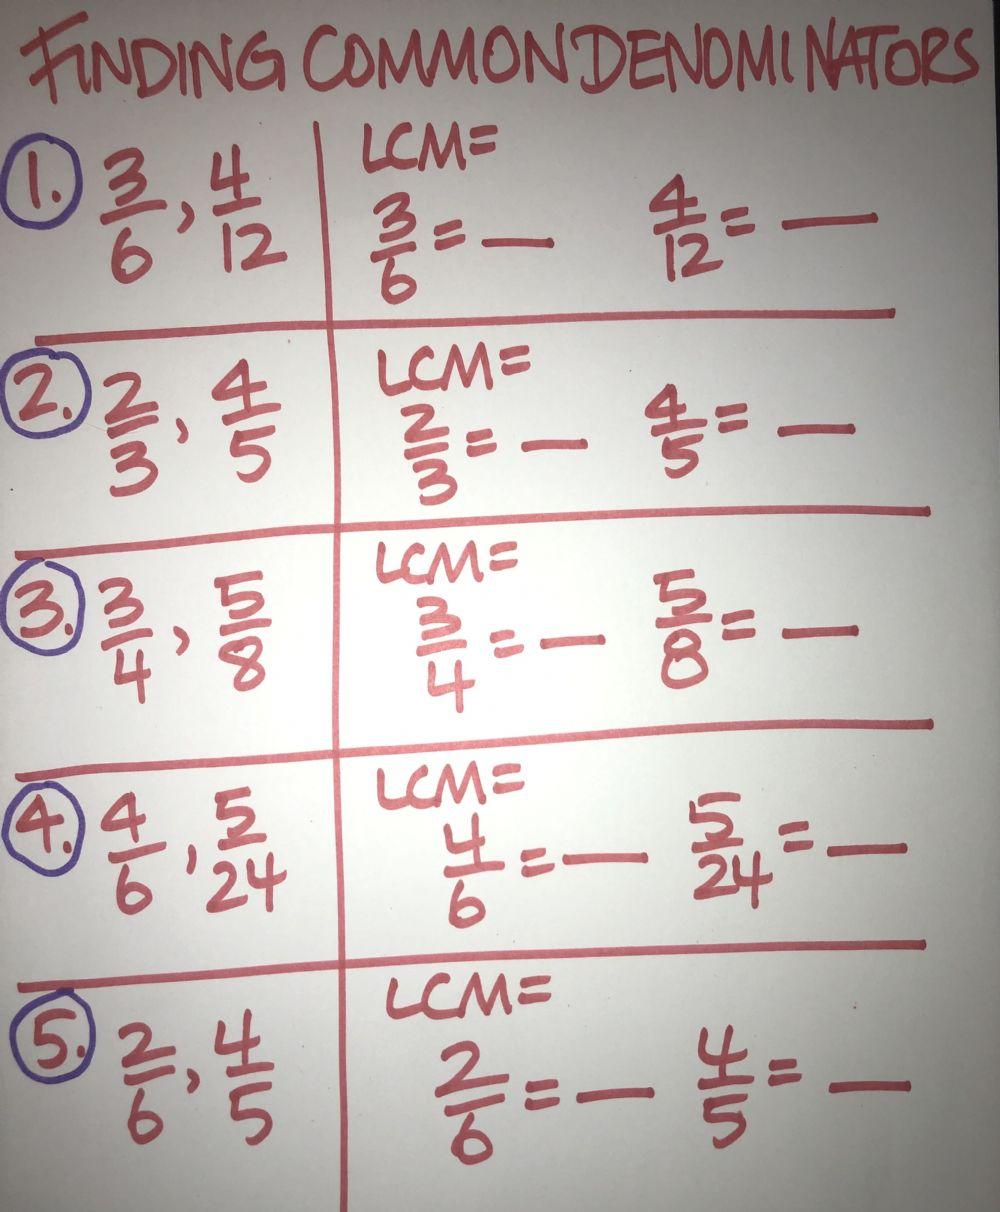 FINDING COMMON DENOMINATORS
1. 3/6, 4/12
LCM=
3/6 = — 4/12 = —
2. 2/3, 4/5
LCM=
2/3 = — 4/5 = —
3. 3/4, 5/8
LCM=
3/4 = — 5/8 = —
4. 4/6, 5/24
LCM=
4/6 = — 5/24 = —
5. 2/6, 4/5
LCM=
2/6 = — 4/5 = —